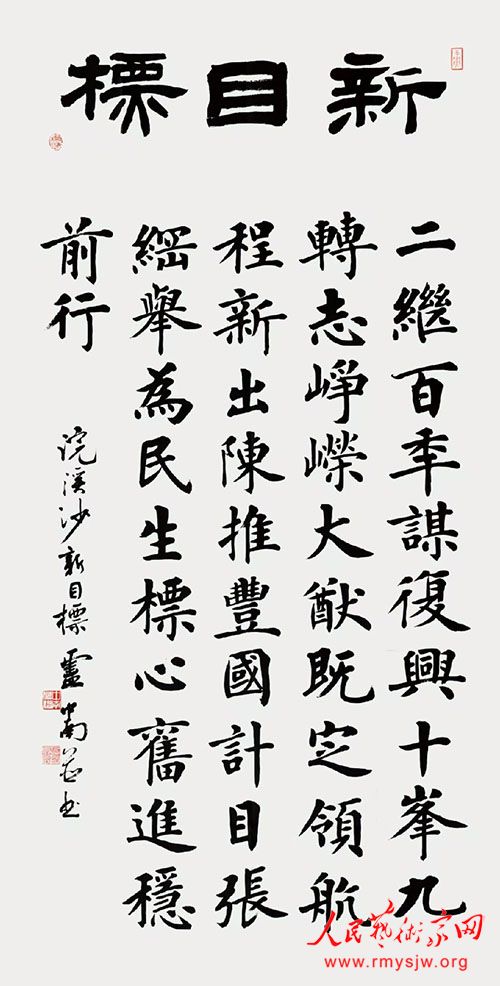 新目標
二繼百秊謀復興十峯九
轉志崢嶸大猷既定領航
程新出陳推豐國計目張
綱舉為民生標心奮進穩
前行
浣溪沙新目標
人民藝術家网
www.rmysjw.org